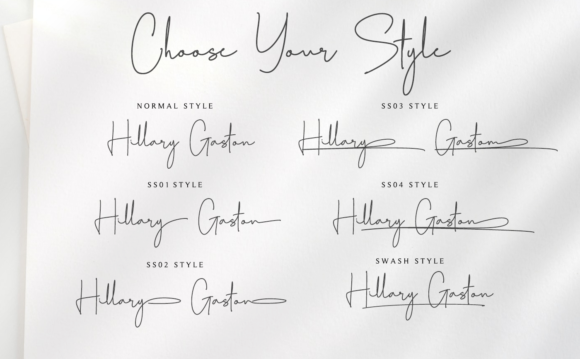 Choose Your Style
NORMAL STYLE
Hillary Gaston
SS01 STYLE
Hillary Gaston
SS02 STYLE
Hillary Gaston
SS03 STYLE
Hillary Gaston
SS04 STYLE
Hillary Gaston
SWASH STYLE
Hillary Gaston